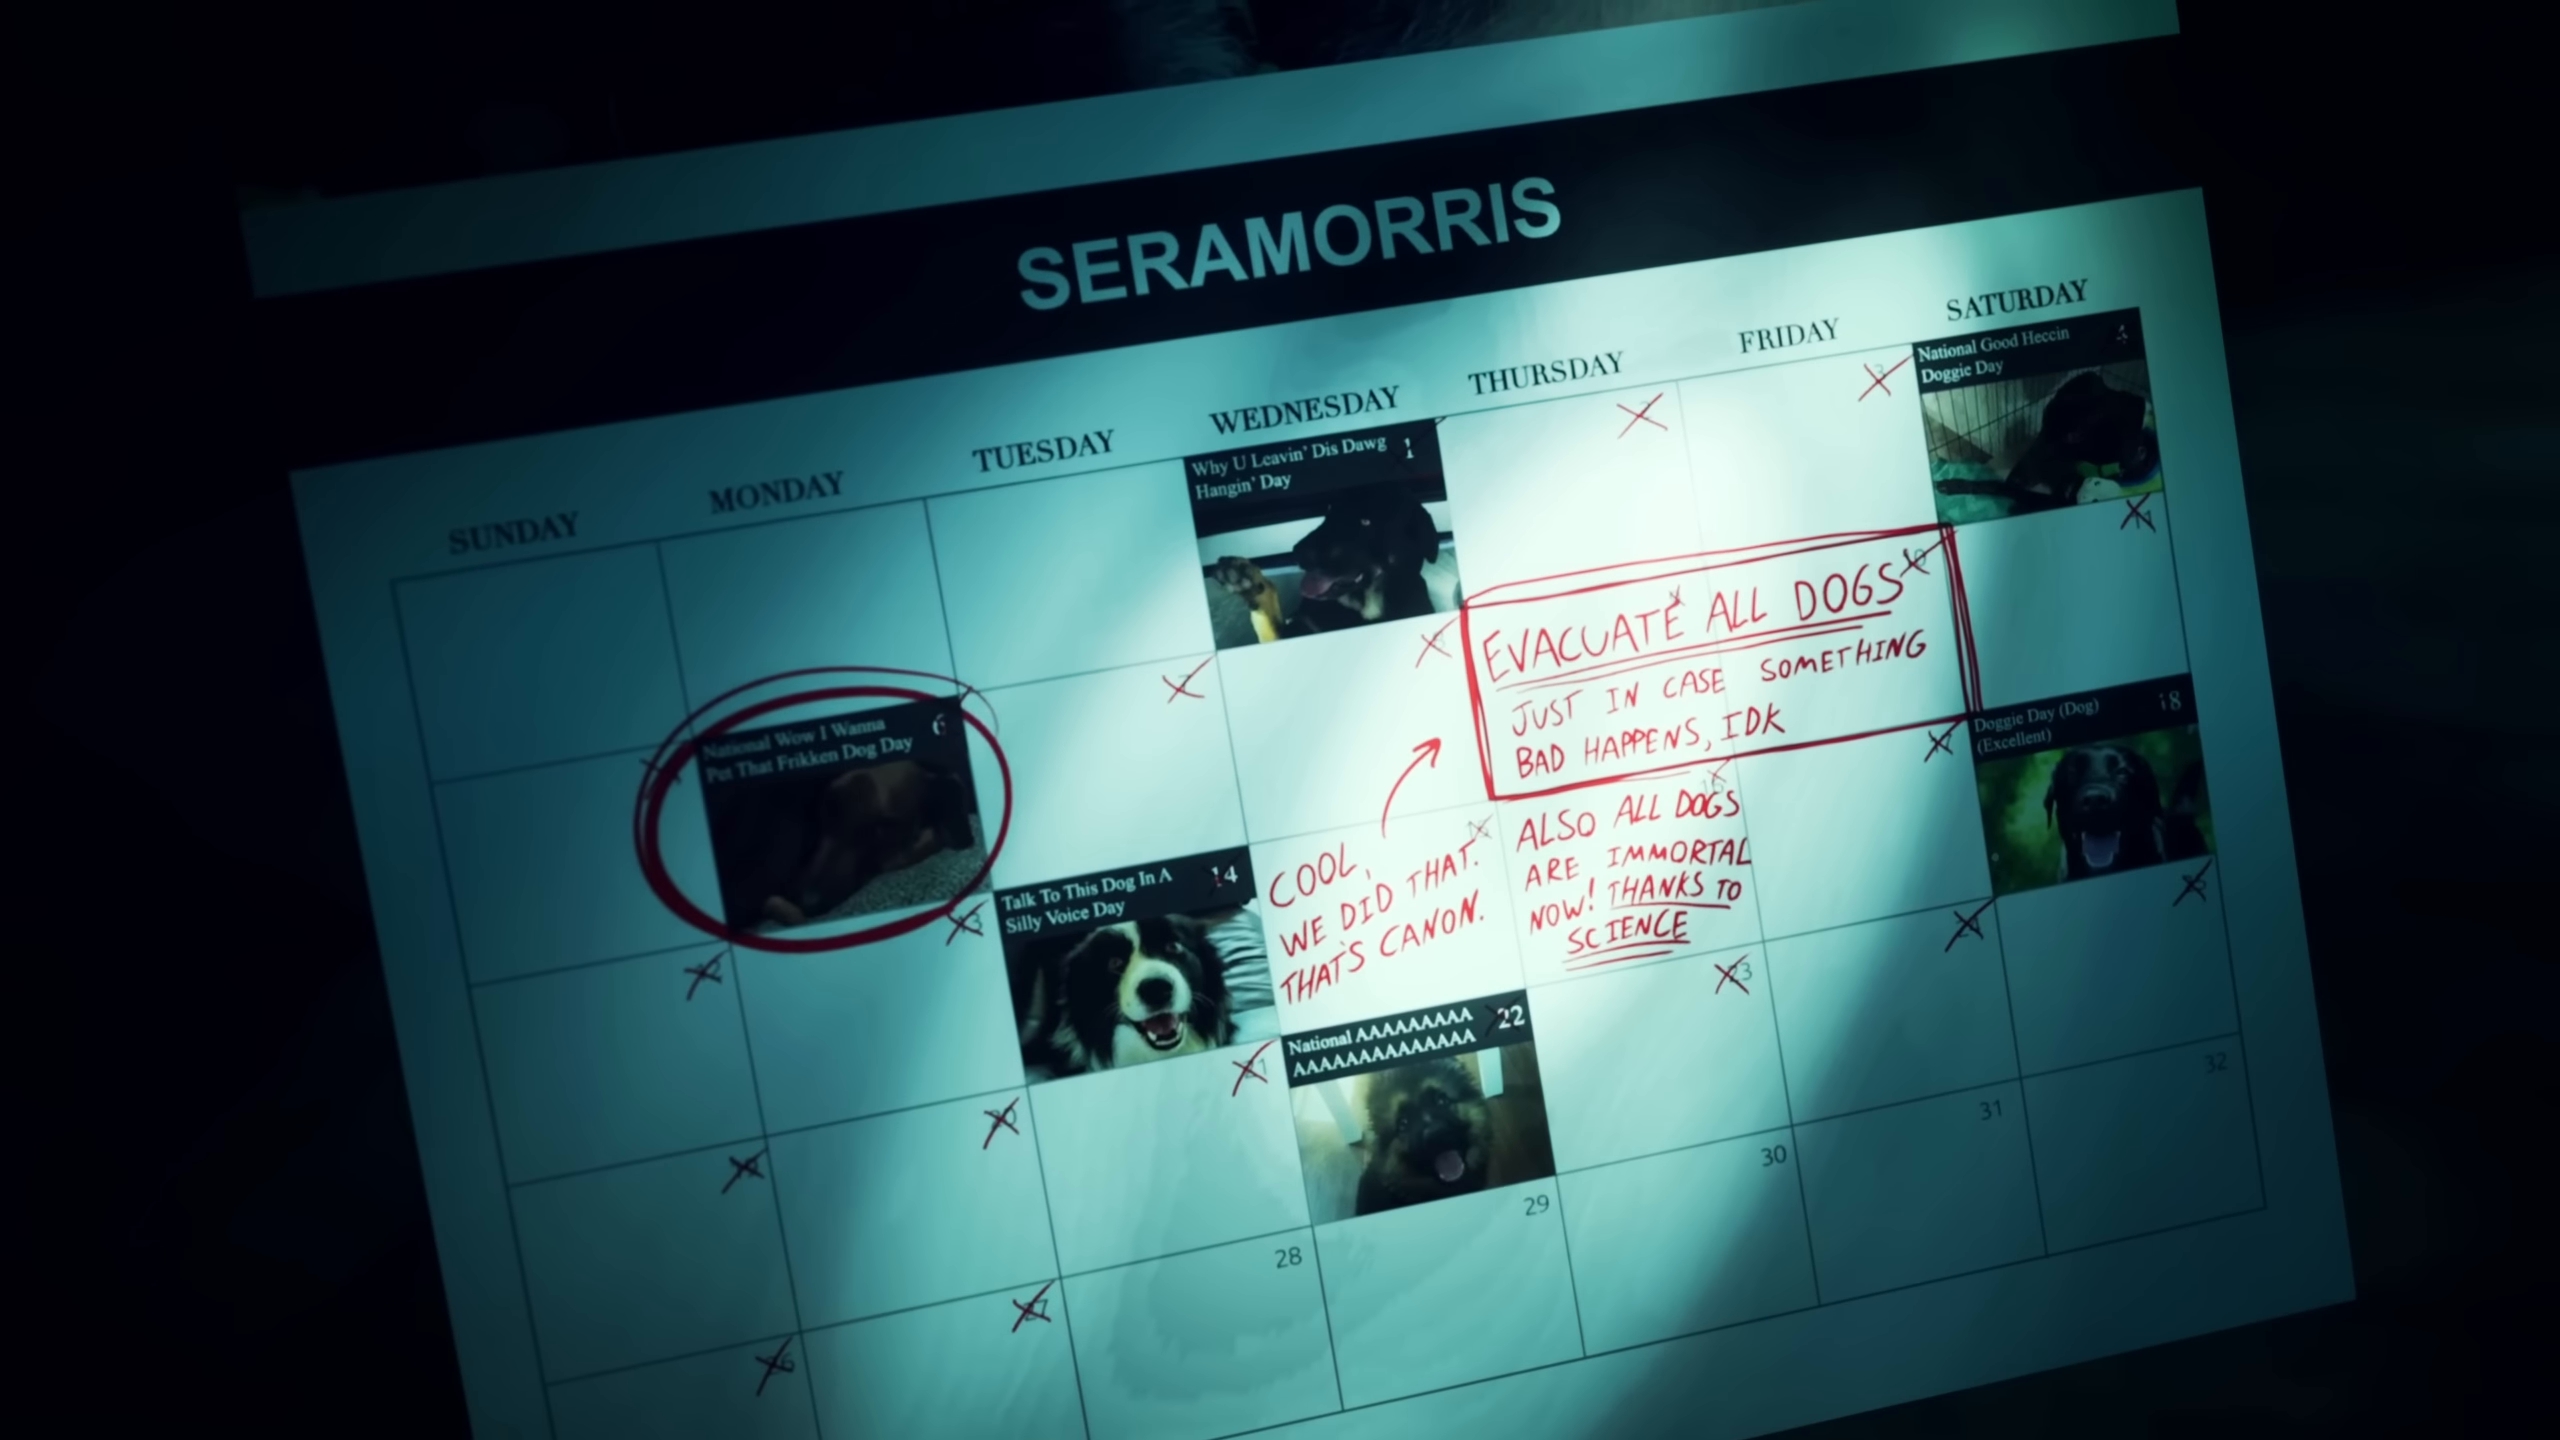 SERAMORRIS
SUNDAY
MONDAY
TUESDAY
WEDNESDAY
THURSDAY
FRIDAY
SATURDAY
Why U Leavin' Dis Dawg
Hangin' Day
1
2
3
National Good Heccin
Doggie Day
4
National Wow I Wanna
Pet That Frikken Dog Day
6
7
8
EVACUATE ALL DOGS
JUST IN CASE SOMETHING
BAD HAPPENS, IDK
10
11
12
13
Talk To This Dog In A
Silly Voice Day
14
COOL,
WE DID THAT.
THAT'S CANON.
16
ALSO ALL DOGS
ARE IMMORTAL
NOW! THANKS TO
SCIENCE
17
Doggie Day (Dog)
(Excellent)
18
19
20
21
National AAAAAAAAA
AAAAAAAAAAAAAA
22
23
24
25
26
27
28
29
30
31
32